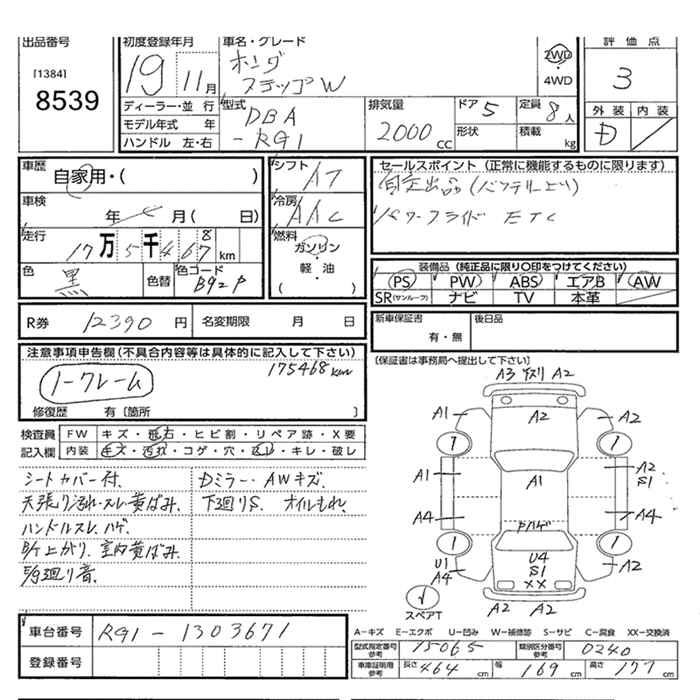 出品番号
[1384]
8539
初度登録年月
19 11月
車名・グレード
ホンダ
ステップW
2WD
・
4WD
評価点
3
外装 内装
D
ディーラー・並行
モデル年式 年
ハンドル 左・右
型式
DBA
-RG1
排気量
2000cc
ドア 5
形状
定員 8人
積載 kg
車歴
自家用・( )
車検
年 月( 日)
走行
17万5千468km
色
黒
色替
色コード
B92P
シフト
AT
冷房
AAC
燃料
ガソリン
・
軽・油
( )
セールスポイント(正常に機能するものに限ります)
自走出品(バッテリー上り)
パワースライド ETC
装備品(純正品に限り○印をつけてください)
PS PW ABS エアB AW
SR(サンルーフ) ナビ TV 本革
R券 12390円 名変期限 月 日
新車保証書
有・無
後日品
(保証書は事務局へ提出して下さい)
注意事項申告欄(不具合内容等は具体的に記入して下さい)
175468km
ノークレーム
修復歴 有〔箇所 〕
検査員
記入欄
FW キズ・飛石・ヒビ割・リペア跡・X要
内装 キズ・汚れ・コゲ・穴・スレ・キレ・破レ
シートカバー付. Dミラー・AWキズ.
天張り汚れ・スレ黄ばみ. 下廻りS. オイルもれ.
ハンドルスレ、ハゲ.
B/T上がり. 室内黄ばみ.
廻り音.
A3 A2
A1 A2 A2
1 1
A1 A1 A2
S1
A4 A4
1 1
U1
A4
U4
S1
XX
A2
A2 A2
スペアT
車台番号 RG1-1303671
登録番号
A-キズ E-エクボ U-凹み W-補修跡 S-サビ C-腐食 XX-交換済
型式指定番号
参考
15065
類別区分番号
参考
0240
車庫証明用
参考
長さ 464cm 幅 169cm 高さ 177cm